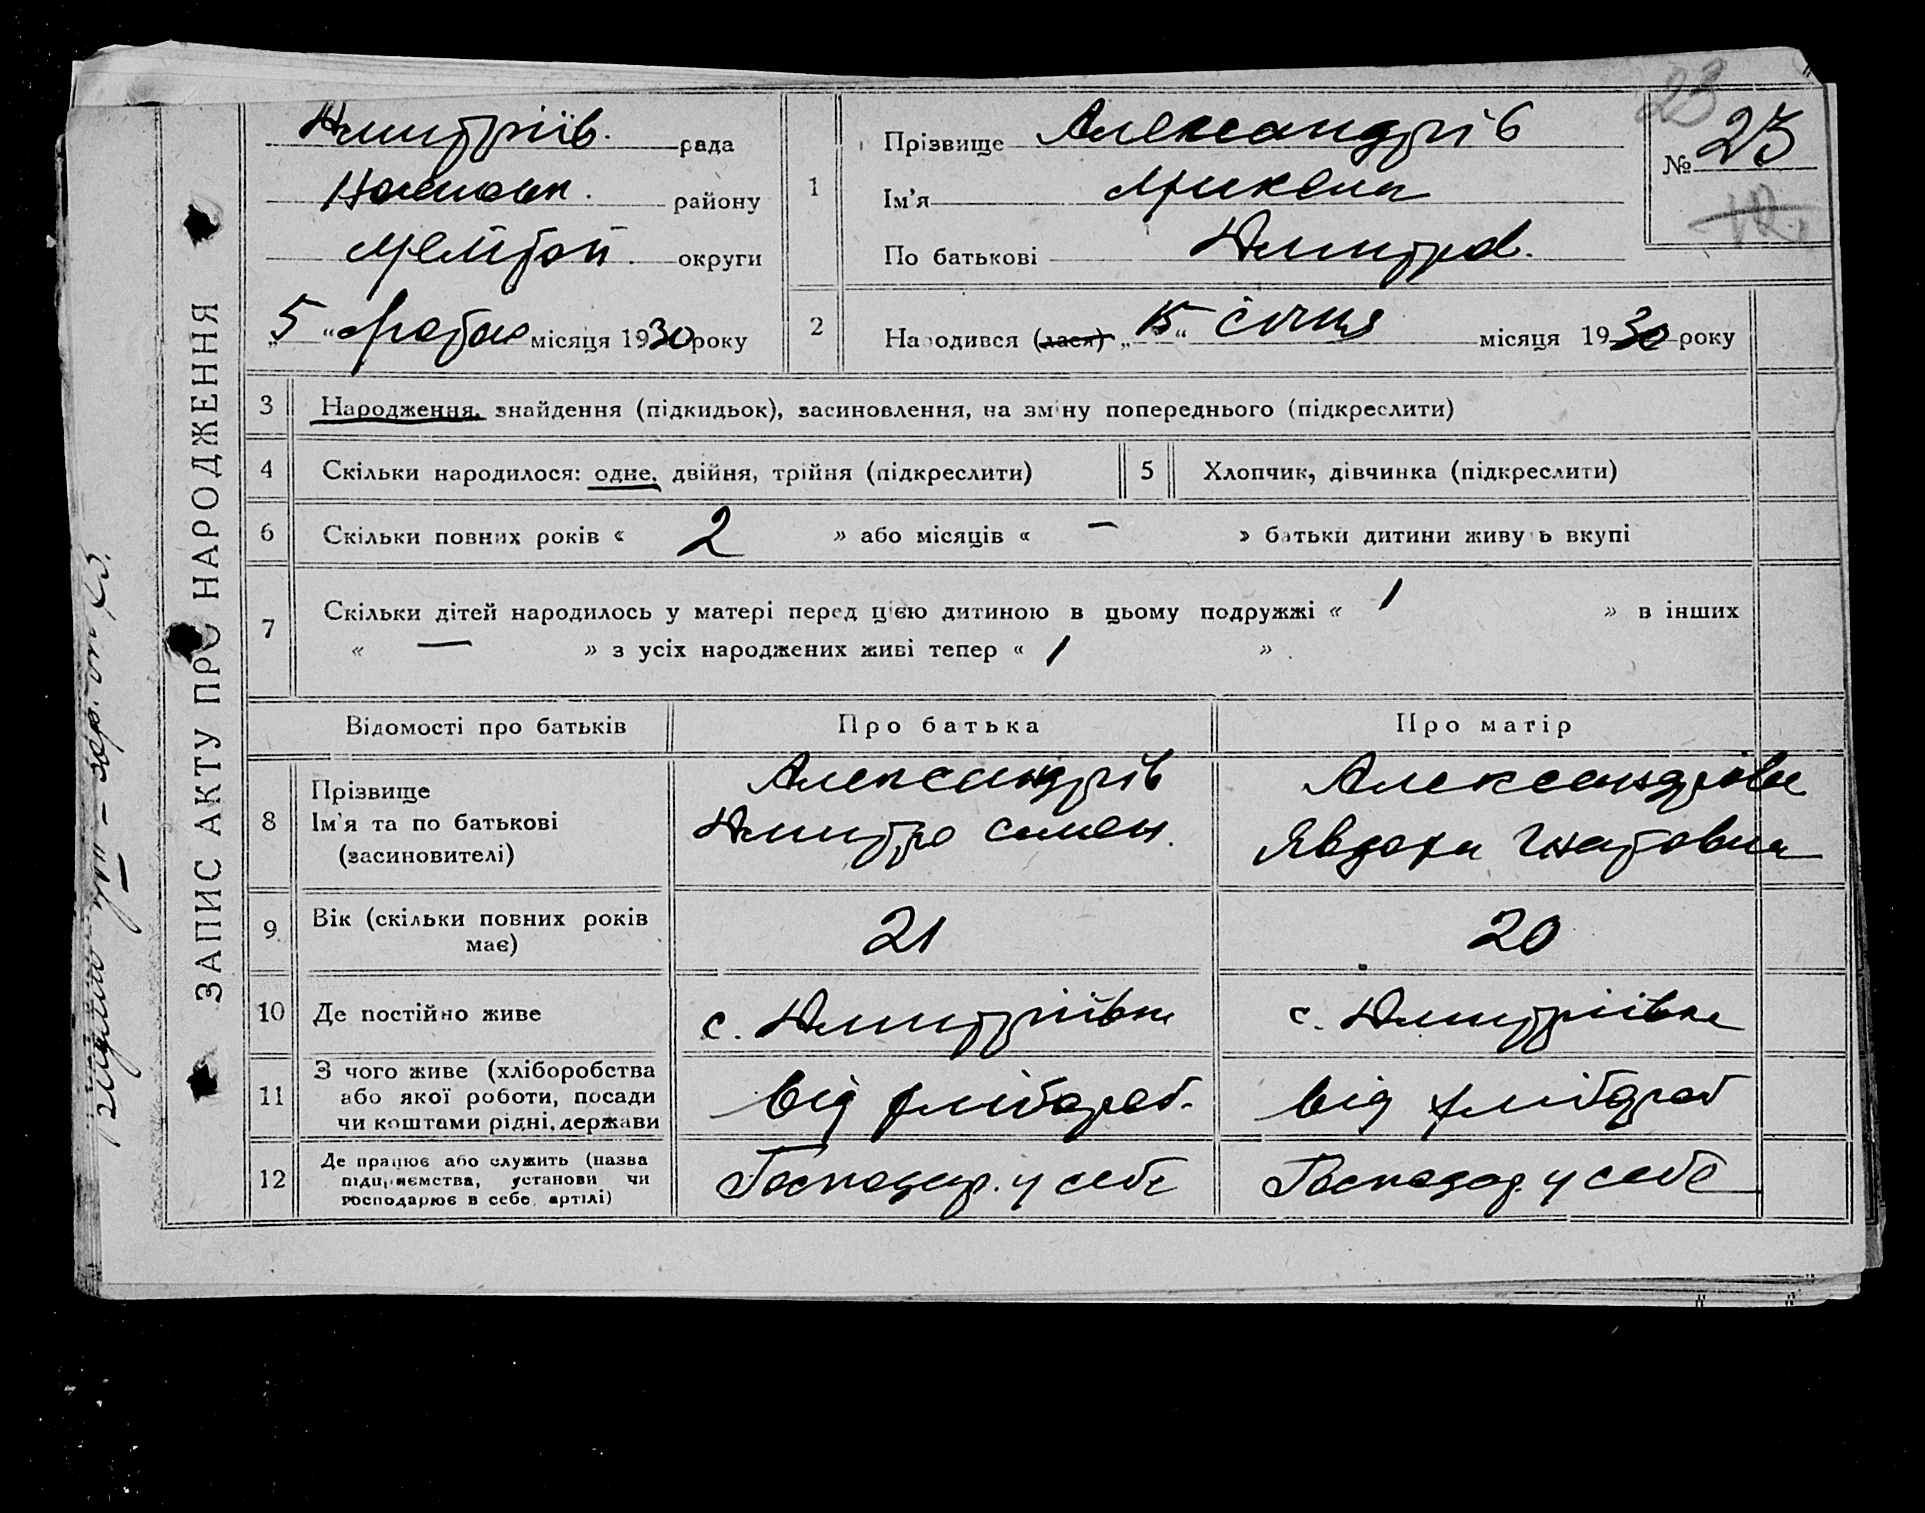 ЗАПИС АКТУ ПРО НАРОДЖЕННЯ
23
Дмитріїв. рада
району
округи
„5“ місяця 1930 року
1
Прізвище Александрів
Ім'я Микола
По батькові Дмитров.
№ 23
2
Народився (лася) „15“ січня місяця 1930 року
3 Народження, знайдення (підкидьок), засиновлення, на зміну попереднього (підкреслити)
4 Скільки народилося: одне, двійня, трійня (підкреслити) 5 Хлопчик, дівчинка (підкреслити)
6 Скільки повних років « 2 » або місяців « — » батьки дитини живуть вкупі
7 Скільки дітей народилось у матері перед цією дитиною в цьому подружжі « 1 » в інших
« — » з усіх народжених живі тепер « 1 »
Відомості про батьків Про батька Про матір
8 Прізвище
Ім'я та по батькові
(засиновителі)
Александрів
Дмитро Семен.
Александрова
Явдоха Гнатовна
9 Вік (скільки повних років
має)
21 20
10 Де постійно живе с. Дмитріївка с. Дмитріївка
11 З чого живе (хліборобства
або якої роботи, посади
чи коштами рідні, держави
від хлібороб. від хлібороб
12 Де працює або служить (назва
підприємства, установи чи
господарює в себе, артілі)
Господар. у себе Господар. у себе